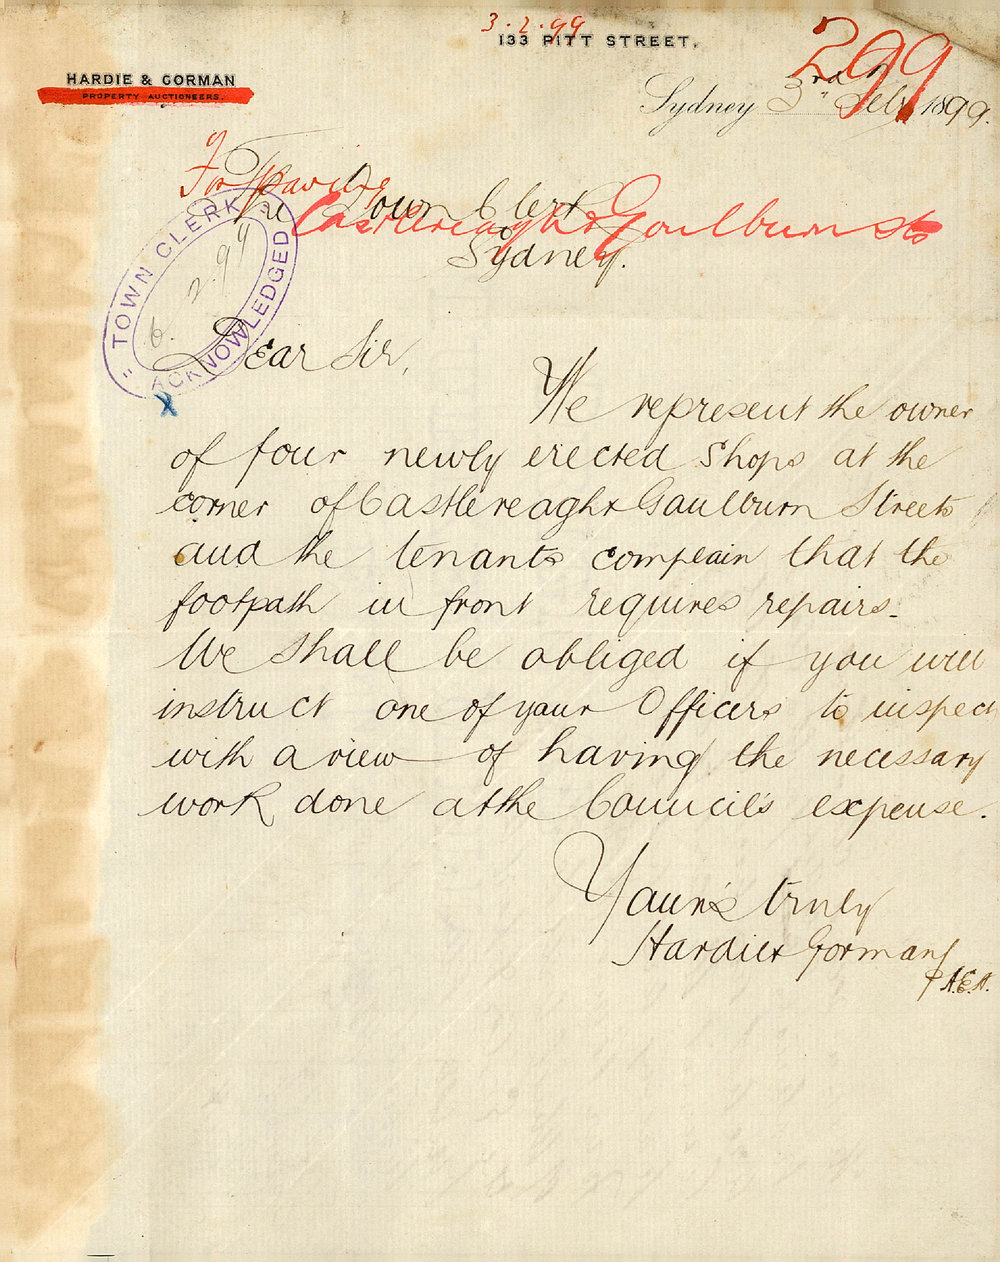 3.2.99
133 PITT STREET.
299
HARDIE & GORMAN
PROPERTY AUCTIONEERS.
Sydney 3rd Feby 1899.
For Paving
The Town Clerk
Castlereagh & Goulburn Sts
Sydney.
TOWN CLERK
6.2.99
ACKNOWLEDGED
Dear Sir,
X
We represent the owner
of four newly erected Shops at the
corner of Castlereagh & Gaulburn Streets
and the tenants complain that the
footpath in front requires repairs.
We shall be obliged if you will
instruct one of your Officers to inspect
with a view of having the necessary
work done at the Council's expense.
Yours truly
Hardie & Gorman
A.E.A.